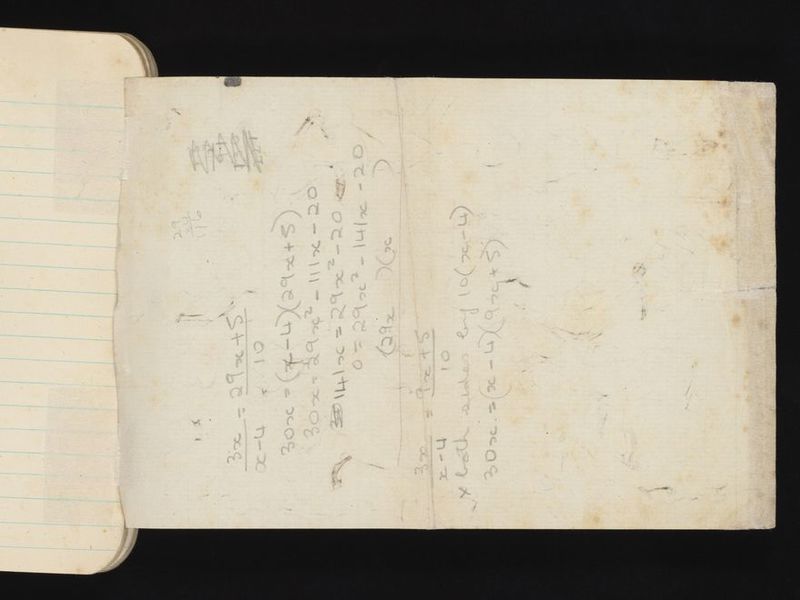 29
4
116
3x/x-4 = 29x+5/10
30x = (x-4)(29x+5)
30x = 29x² - 111x - 20
141x = 29x² - 20
0 = 29x² - 141x - 20
(29x )(x )
3x/x-4 = 9x+5/10
x both sides by 10(x-4)
30x = (x-4)(9x+5)